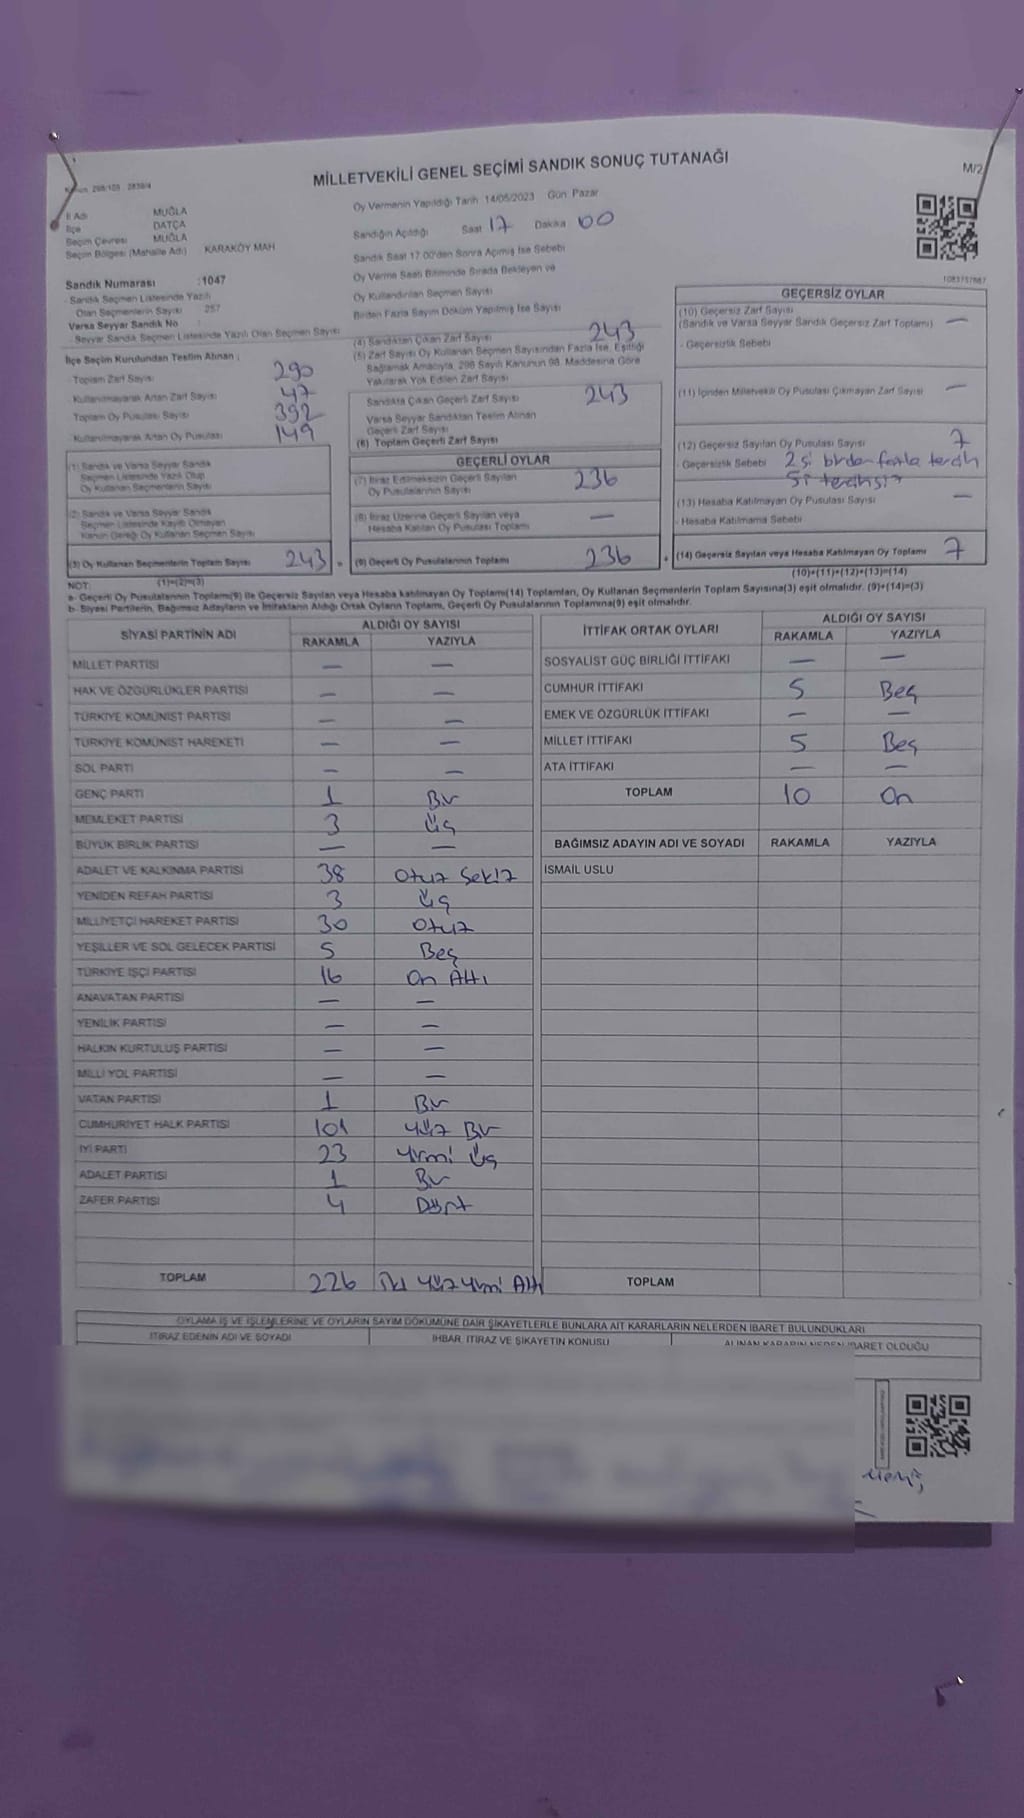 MİLLETVEKİLİ GENEL SEÇİMİ SANDIK SONUÇ TUTANAĞI
M/2
İl Adı MUĞLA
İlçe DATÇA
Seçim Çevresi MUĞLA
Seçim Bölgesi (Mahalle Adı) KARAKÖY MAH
Oy Vermenin Yapıldığı Tarih 14/05/2023 Gün Pazar
Sandığın Açıldığı Saat 17 Dakika 00
Sandık Saat 17.00'den Sonra Açılmış İse Sebebi
Oy Verme Saati Bitiminde Sırada Bekleyen ve
Oy Kullandırılan Seçmen Sayısı
Birden Fazla Sayım Döküm Yapılmış İse Sayısı
Sandık Numarası :1047
- Sandık Seçmen Listesinde Yazılı
Olan Seçmenlerin Sayısı : 257
Varsa Seyyar Sandık No
- Seyyar Sandık Seçmen Listesinde Yazılı Olan Seçmen Sayısı
İlçe Seçim Kurulundan Teslim Alınan ;
- Toplam Zarf Sayısı 290
- Kullanılmayarak Artan Zarf Sayısı 47
Toplam Oy Pusulası Sayısı 392
- Kullanılmayarak Artan Oy Pusulası 149
(1) Sandık ve Varsa Seyyar Sandık
Seçmen Listesinde Yazılı Olup
Oy Kullanan Seçmenlerin Sayısı
(2) Sandık ve Varsa Seyyar Sandık
Seçmen Listesinde Kayıtlı Olmayan
Kanun Gereği Oy Kullanan Seçmen Sayısı
(3) Oy Kullanan Seçmenlerin Toplam Sayısı 243 =
(1)+(2)=(3)
(4) Sandıktan Çıkan Zarf Sayısı 243
(5) Zarf Sayısı Oy Kullanan Seçmen Sayısından Fazla İse, Eşitliği
Sağlamak Amacıyla, 298 Sayılı Kanunun 98. Maddesine Göre
Yakılarak Yok Edilen Zarf Sayısı
Sandıkta Çıkan Geçerli Zarf Sayısı 243
Varsa Seyyar Sandıktan Teslim Alınan
Geçerli Zarf Sayısı
(6) Toplam Geçerli Zarf Sayısı
GEÇERLİ OYLAR
(7) İtiraz Edilmeksizin Geçerli Sayılan
Oy Pusulalarının Sayısı 236
(8) İtiraz Üzerine Geçerli Sayılan veya
Hesaba Katılan Oy Pusulası Toplamı —
(9) Geçerli Oy Pusulalarının Toplamı 236 +
1083757687
GEÇERSİZ OYLAR
(10) Geçersiz Zarf Sayısı
(Sandık ve Varsa Seyyar Sandık Geçersiz Zarf Toplamı) —
- Geçersizlik Sebebi
(11) İçinden Milletvekili Oy Pusulası Çıkmayan Zarf Sayısı —
(12) Geçersiz Sayılan Oy Pusulası Sayısı 7
- Geçersizlik Sebebi 2 si birden fazla tercih
5i tercihsiz
(13) Hesaba Katılmayan Oy Pusulası Sayısı —
- Hesaba Katılmama Sebebi
(14) Geçersiz Sayılan veya Hesaba Katılmayan Oy Toplamı 7
(10)+(11)+(12)+(13)=(14)
NOT:
a- Geçerli Oy Pusulalarının Toplamı(9) ile Geçersiz Sayılan veya Hesaba katılmayan Oy Toplam(14) Toplamları, Oy Kullanan Seçmenlerin Toplam Sayısına(3) eşit olmalıdır. (9)+(14)=(3)
b- Siyasi Partilerin, Bağımsız Adayların ve İttifakların Aldığı Ortak Oyların Toplamı, Geçerli Oy Pusulalarının Toplamına(9) eşit olmalıdır.
SİYASİ PARTİNİN ADI ALDIĞI OY SAYISI
RAKAMLA YAZIYLA
MİLLET PARTİSİ — —
HAK VE ÖZGÜRLÜKLER PARTİSİ — —
TÜRKİYE KOMÜNİST PARTİSİ — —
TÜRKİYE KOMÜNİST HAREKETİ — —
SOL PARTİ — —
GENÇ PARTİ 1 Bir
MEMLEKET PARTİSİ 3 Üç
BÜYÜK BİRLİK PARTİSİ — —
ADALET VE KALKINMA PARTİSİ 38 Otuz Sekiz
YENİDEN REFAH PARTİSİ 3 Üç
MİLLİYETÇİ HAREKET PARTİSİ 30 Otuz
YEŞİLLER VE SOL GELECEK PARTİSİ 5 Beş
TÜRKİYE İŞÇİ PARTİSİ 16 On Altı
ANAVATAN PARTİSİ — —
YENİLİK PARTİSİ — —
HALKIN KURTULUŞ PARTİSİ — —
MİLLİ YOL PARTİSİ — —
VATAN PARTİSİ 1 Bir
CUMHURİYET HALK PARTİSİ 101 Yüz Bir
İYİ PARTİ 23 Yirmi Üç
ADALET PARTİSİ 1 Bir
ZAFER PARTİSİ 4 Dört
TOPLAM 226 İki Yüz Yirmi Altı
İTTİFAK ORTAK OYLARI ALDIĞI OY SAYISI
RAKAMLA YAZIYLA
SOSYALİST GÜÇ BİRLİĞİ İTTİFAKI — —
CUMHUR İTTİFAKI 5 Beş
EMEK VE ÖZGÜRLÜK İTTİFAKI — —
MİLLET İTTİFAKI 5 Beş
ATA İTTİFAKI — —
TOPLAM 10 On
BAĞIMSIZ ADAYIN ADI VE SOYADI RAKAMLA YAZIYLA
İSMAİL USLU
TOPLAM
OYLAMA İŞ VE İŞLEMLERİNE VE OYLARIN SAYIM DÖKÜMÜNE DAİR ŞİKAYETLERLE BUNLARA AİT KARARLARIN NELERDEN İBARET BULUNDUKLARI
İTİRAZ EDENİN ADI VE SOYADI İHBAR, İTİRAZ VE ŞİKAYETİN KONUSU ALINAN KARARIN NEDEN İBARET OLDUĞU